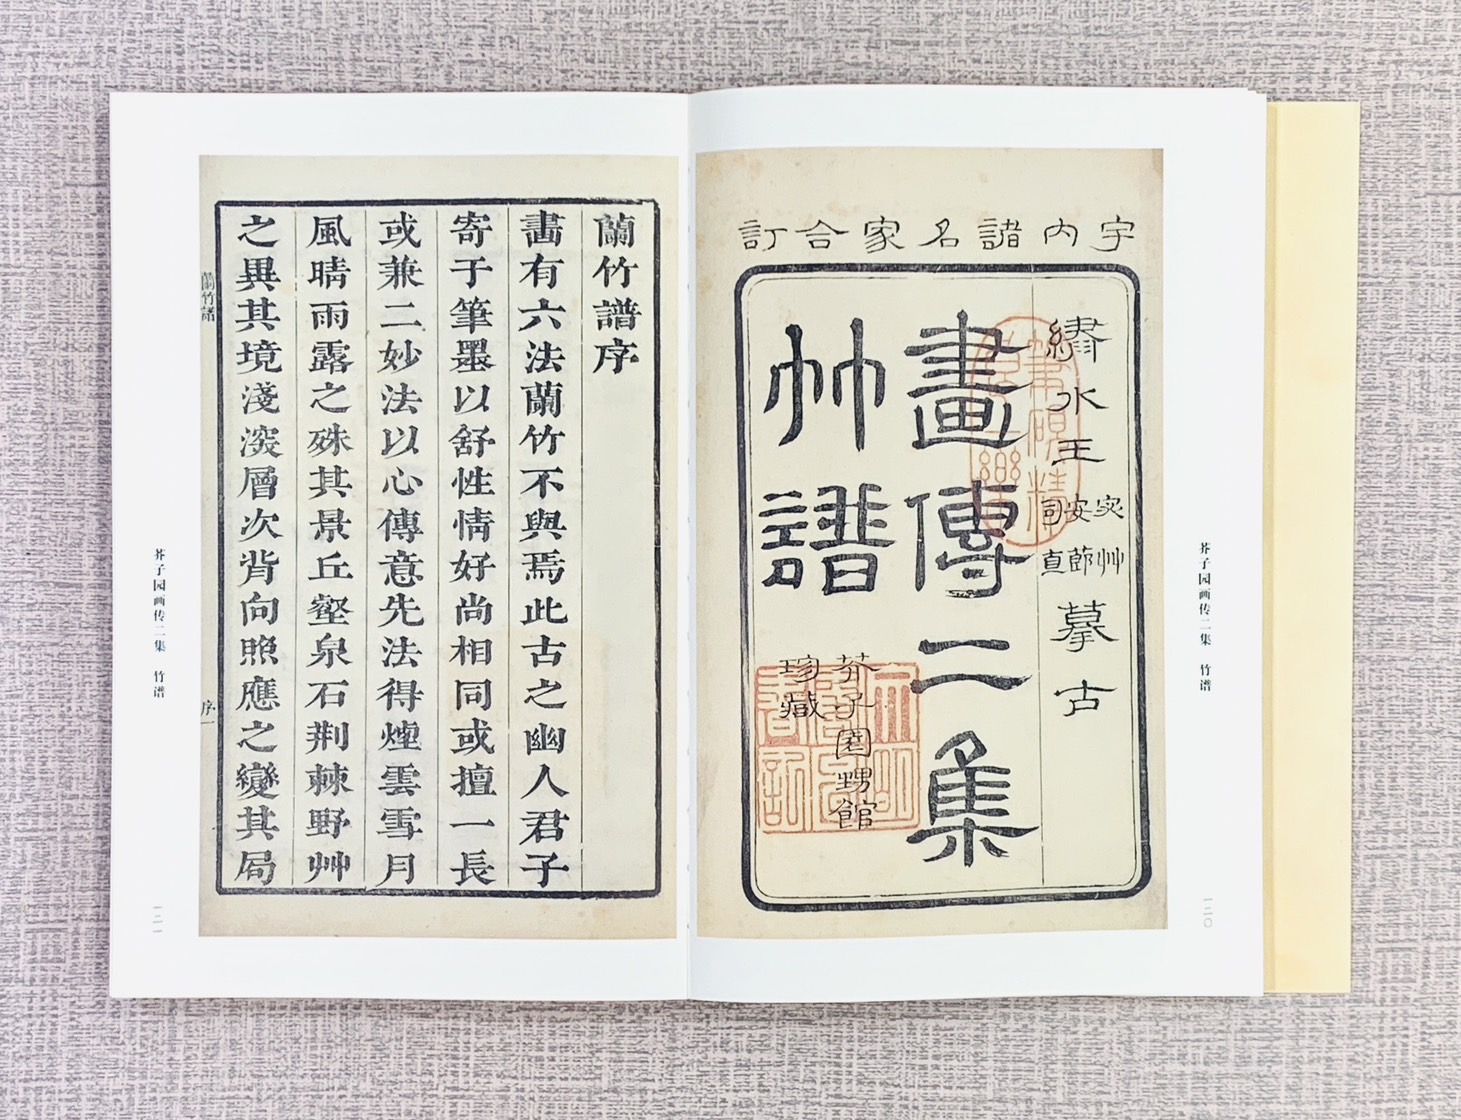 宇内諸名家合訂
繡水王
宓艸
安節
司直
摹古
畫傳二集
竹譜
芥子園甥館
珍藏
芥子园画传二集 竹谱
一二〇
蘭竹譜序
畵有六法蘭竹不與焉此古之幽人君子
寄于筆墨以舒性情好尚相同或擅一長
或兼二妙法以心傳意先法得煙雲雪月
風晴雨露之殊其景丘壑泉石荆棘野艸
之異其境淺深層次背向照應之變其局
蘭竹譜
序一
芥子园画传二集 竹谱
一二一